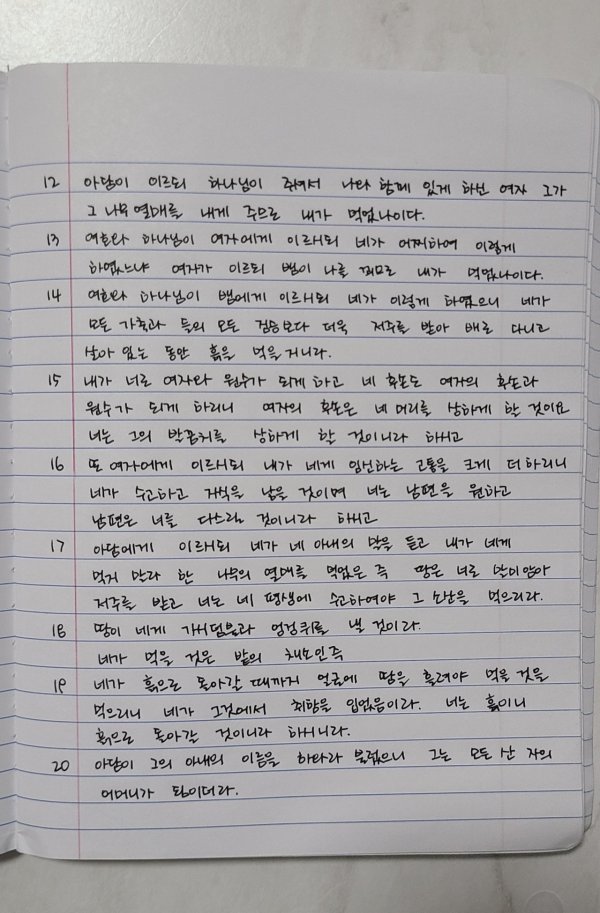 12 아담이 이르되 하나님이 주셔서 나와 함께 있게 하신 여자 그가
그 나무 열매를 내게 주므로 내가 먹었나이다.
13 여호와 하나님이 여자에게 이르시되 네가 어찌하여 이렇게
하였느냐 여자가 이르되 뱀이 나를 꾀므로 내가 먹었나이다.
14 여호와 하나님이 뱀에게 이르시되 네가 이렇게 하였으니 네가
모든 가축과 들의 모든 짐승보다 더욱 저주를 받아 배로 다니고
살아 있는 동안 흙을 먹을거니라.
15 내가 너로 여자와 원수가 되게 하고 네 후손도 여자의 후손과
원수가 되게 하리니 여자의 후손은 네 머리를 상하게 할 것이요
너는 그의 발꿈치를 상하게 할 것이니라 하시고
16 또 여자에게 이르시되 내가 네게 임신하는 고통을 크게 더하리니
네가 수고하고 자식을 낳을 것이며 너는 남편을 원하고
남편은 너를 다스릴 것이니라 하시고
17 아담에게 이르시되 네가 네 아내의 말을 듣고 내가 네게
먹지 말라 한 나무의 열매를 먹었은 즉 땅은 너로 말미암아
저주를 받고 너는 네 평생에 수고하여야 그 소산을 먹으리라.
18 땅이 네게 가시덤불과 엉겅퀴를 낼 것이라.
네가 먹을 것은 밭의 채소인즉
19 네가 흙으로 돌아갈 때까지 얼굴에 땀을 흘려야 먹을 것을
먹으리니 네가 그것에서 취함을 입었음이라. 너는 흙이니
흙으로 돌아갈 것이니라 하시니라.
20 아담이 그의 아내의 이름을 하와라 불렀으니 그는 모든 산 자의
어머니가 됨이더라.